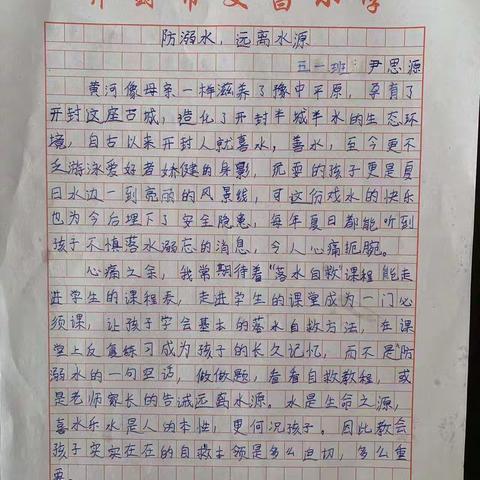 开封市文昌小学
防溺水，远离水源
五一班 尹思源
黄河像母亲一样滋养了豫中平原，孕育了
开封这座古城，造化了开封半城半水的生态环
境，自古以来开封人就喜水，善水，至今更不
乏游泳爱好者娇健的身影，玩耍的孩子更是夏
日水边一到亮丽的风景线，可这份戏水的快乐
也为今后埋下了安全隐患，每年夏日都能听到
孩子不慎落水溺忘的消息，令人心痛扼腕。
心痛之余，我常期待着“落水自救”课程能走
进学生的课程表，走进学生的课堂成为一门必
须课，让孩子学会基本的落水自救方法，在课
堂上反复练习成为孩子的长久记忆，而不是“防
溺水的一句空话，做做题，看看自救教程，或
是老师家长的告诫远离水源。水是生命之源，
喜水乐水是人的本性，更何况孩子。因此教会
孩子实实在在的自救本领是多么迫切，多么重
要。